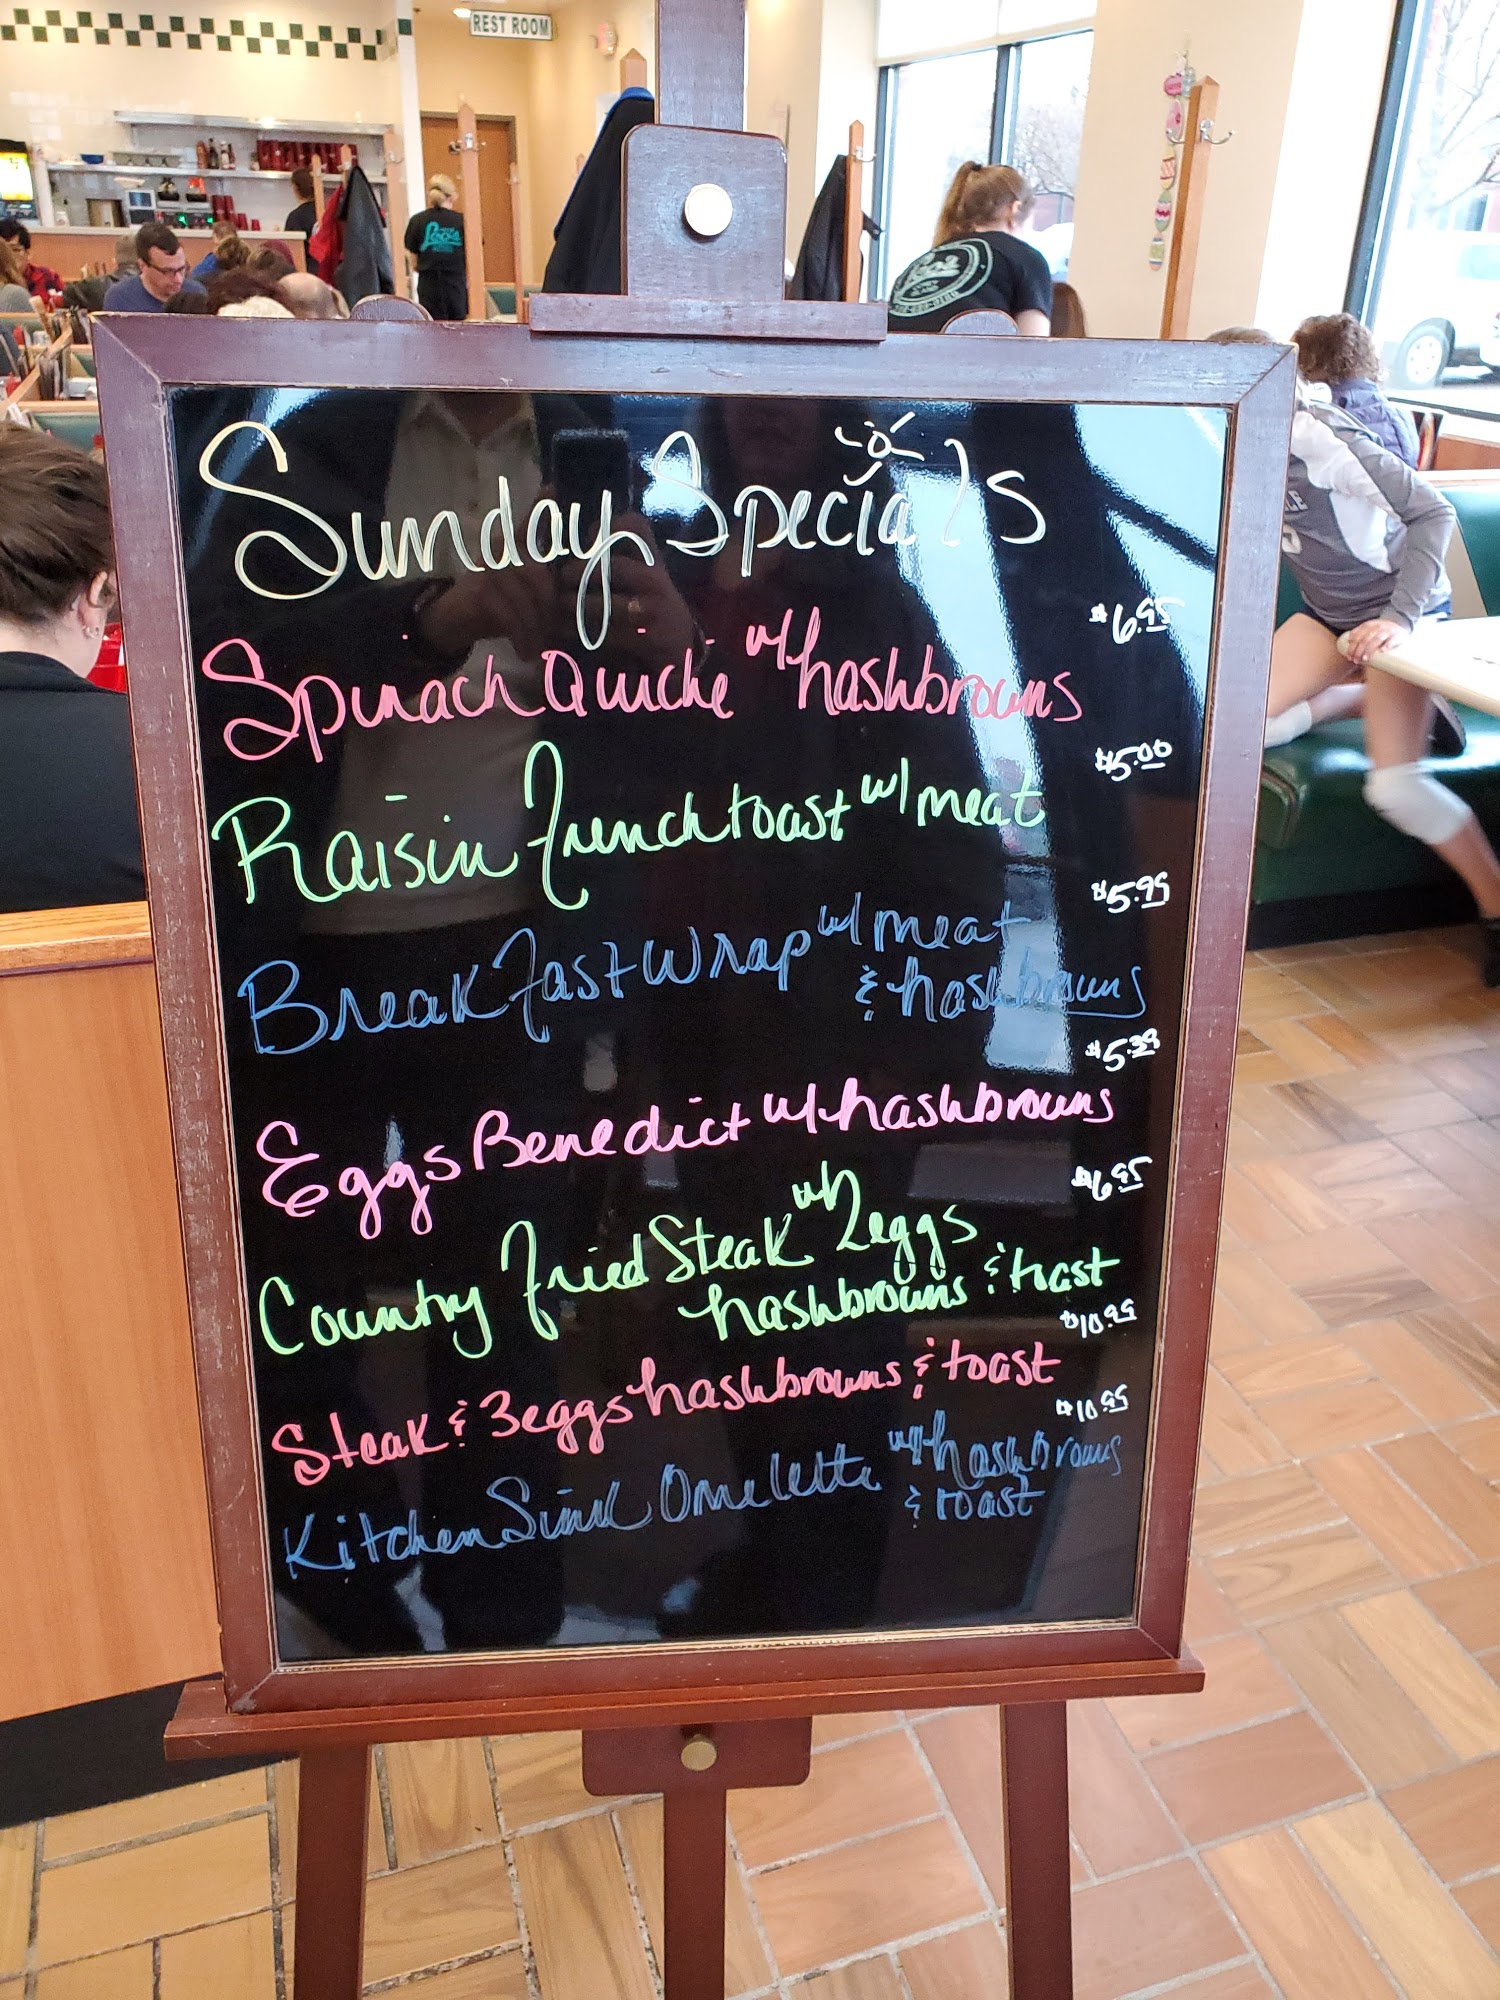 REST ROOM
Sunday Specials
$6.95
Spinach Quiche w/ hashbrowns
$5.00
Raisin French toast w/ meat
$5.95
Breakfast Wrap w/ meat
& hashbrowns
$5.39
Eggs Benedict w/ hashbrowns
$6.95
Country Fried Steak w/ 2 eggs
hashbrowns & toast
$10.99
Steak & 3 eggs hashbrowns & toast
$10.95
Kitchen Sink Omelette w/ hashbrowns
& toast